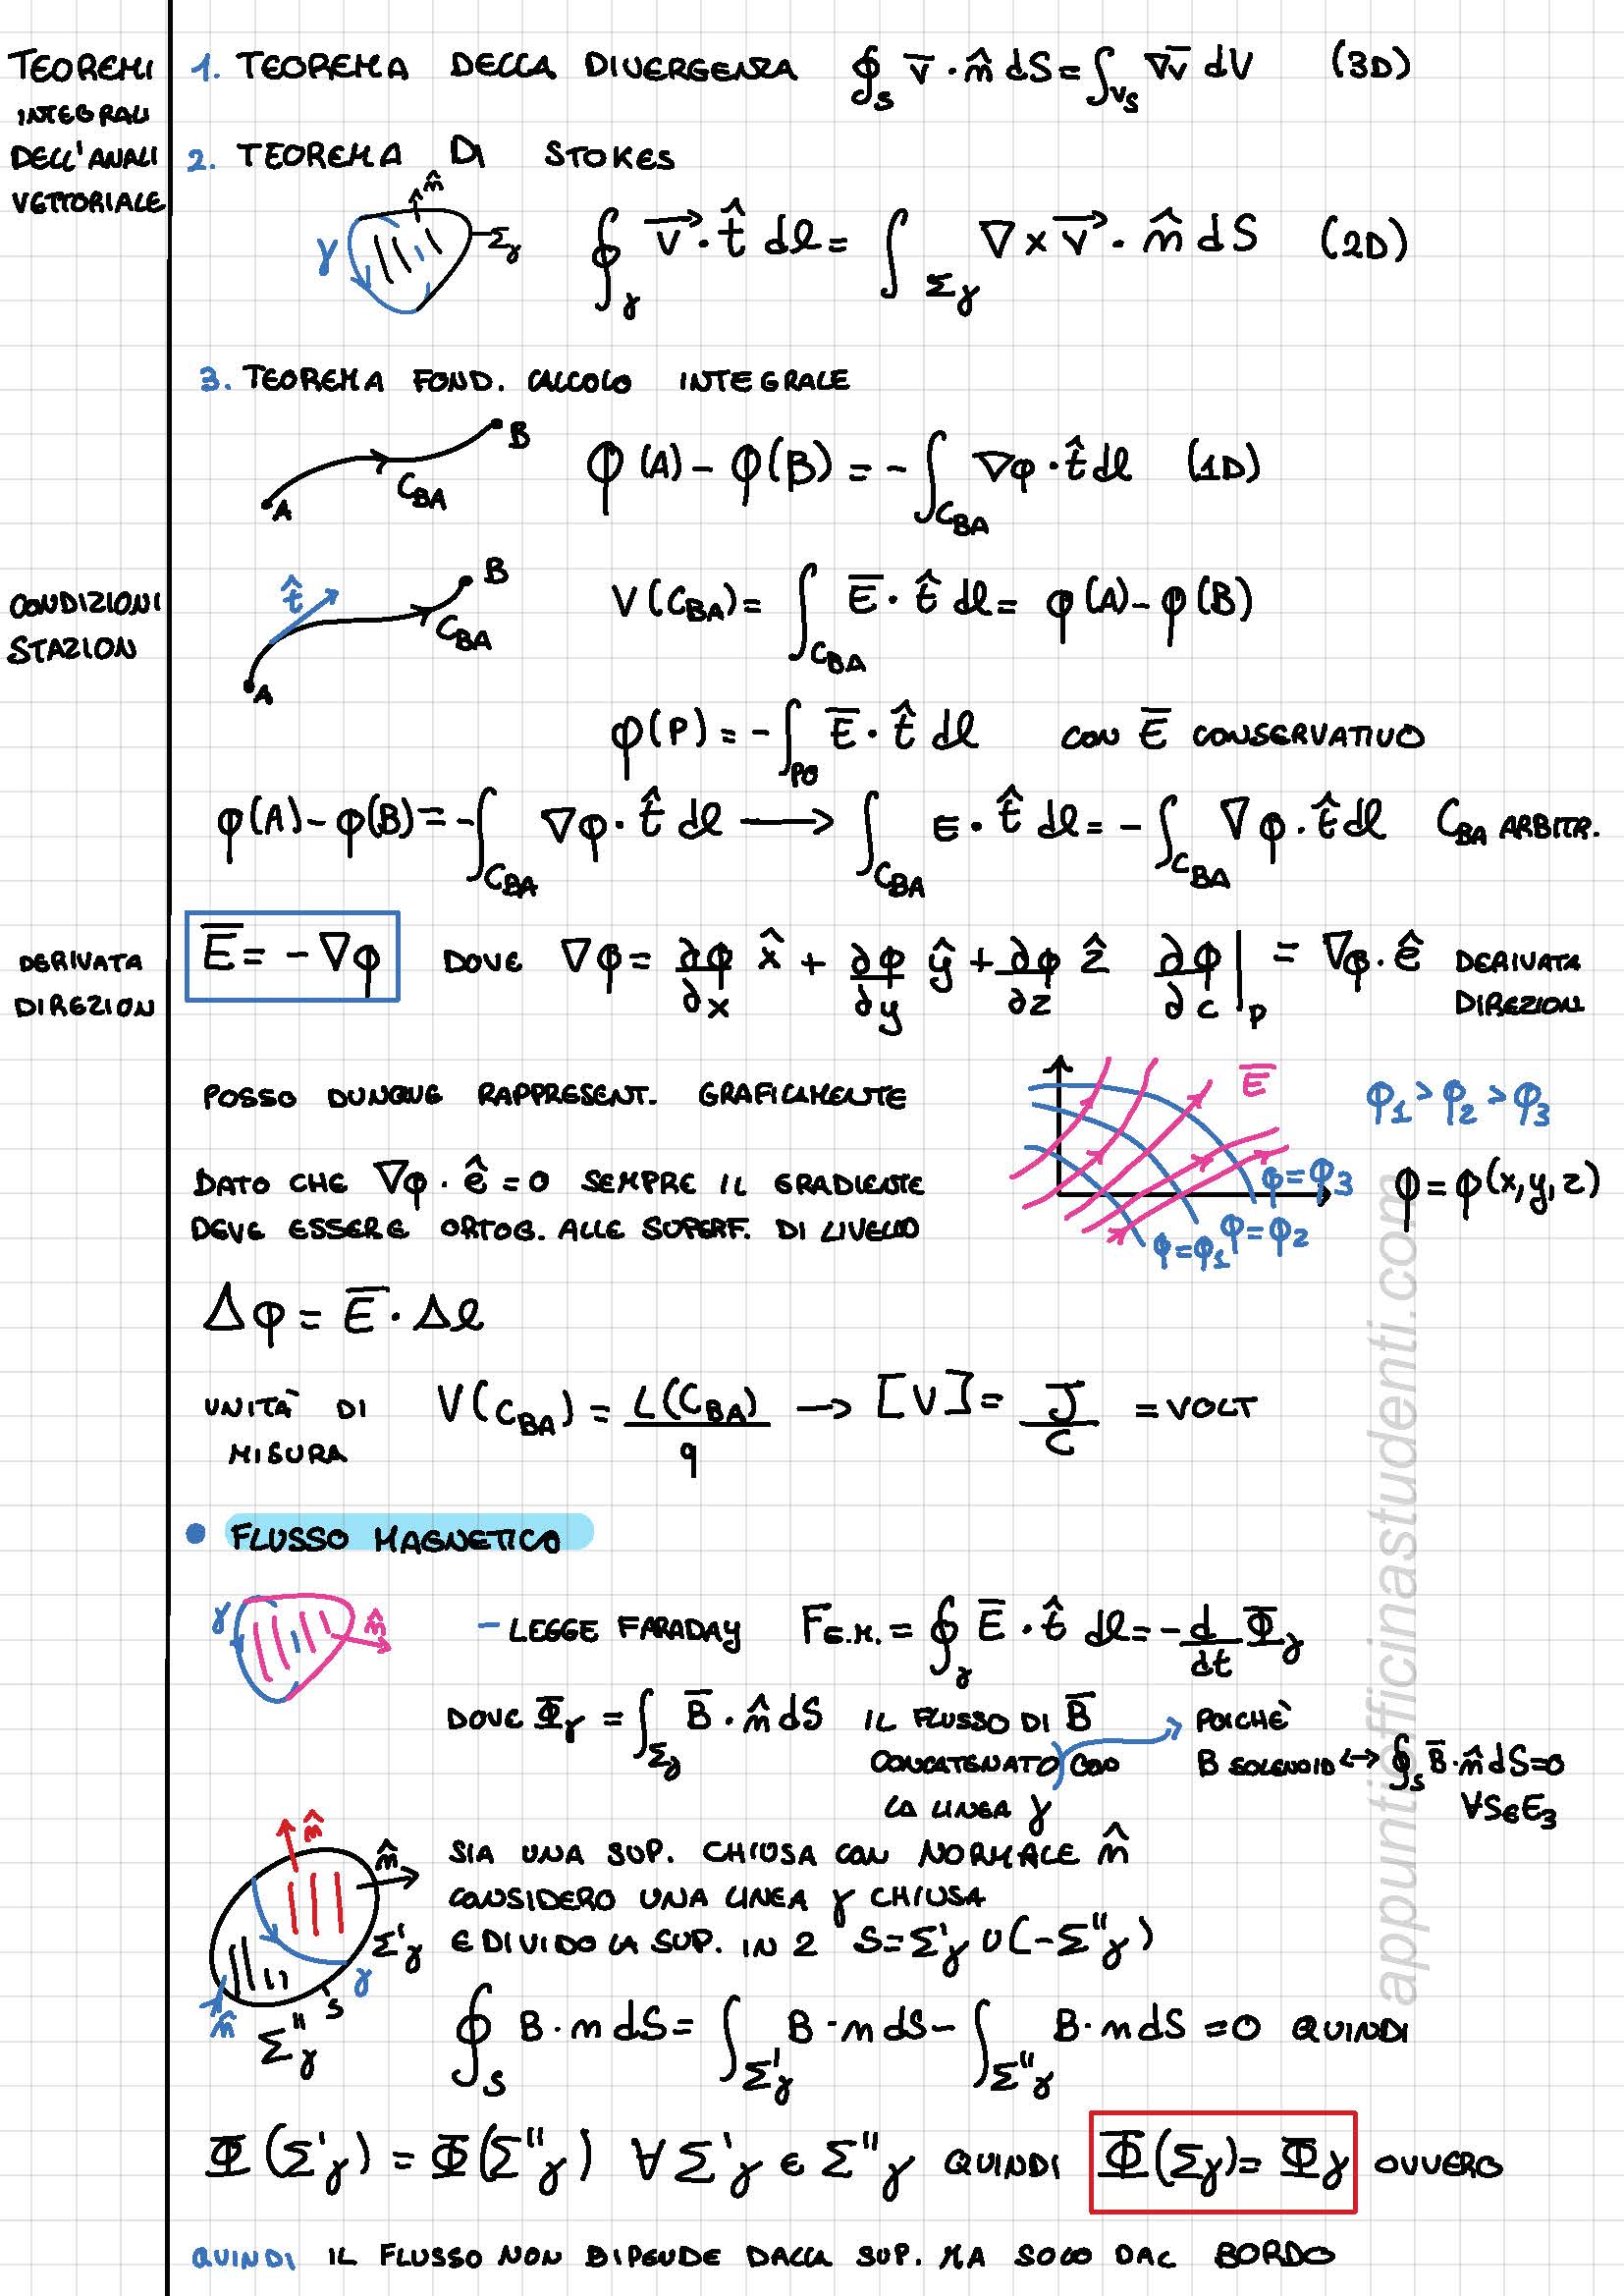 TEOREMI
INTEGRALI
DELL'ANALI
VETTORIALE
1. TEOREMA DELLA DIVERGENZA ∮_S v̅ · n̂ dS = ∫_{V_S} ∇v̅ dV (3D)
2. TEOREMA DI STOKES
n̂
γ
Σ_γ
∮_γ v⃗ · t̂ dl = ∫_{Σ_γ} ∇ × v⃗ · n̂ dS (2D)
3. TEOREMA FOND. CALCOLO INTEGRALE
A C_BA B
φ(A) - φ(B) = - ∫_{C_BA} ∇φ · t̂ dl (1D)
CONDIZIONI
STAZION
t̂ A C_BA B
V(C_BA) = ∫_{C_BA} E̅ · t̂ dl = φ(A) - φ(B)
φ(P) = - ∫_{PO} E̅ · t̂ dl CON E̅ CONSERVATIVO
φ(A) - φ(B) = - ∫_{C_BA} ∇φ · t̂ dl → ∫_{C_BA} E · t̂ dl = - ∫_{C_BA} ∇φ · t̂ dl C_BA ARBITR.
DERIVATA
DIREZION
E̅ = - ∇φ DOVE ∇φ = ∂φ/∂x x̂ + ∂φ/∂y ŷ + ∂φ/∂z ẑ ∂φ/∂c |_P = ∇φ · ê DERIVATA
DIREZION
POSSO DUNQUE RAPPRESENT. GRAFICAMENTE
E̅
φ1 > φ2 > φ3
DATO CHE ∇φ · ê = 0 SEMPRE IL GRADIENTE
DEVE ESSERE ORTOG. ALLE SUPERF. DI LIVELLO
φ=φ3
φ=φ2
φ=φ1
φ = φ(x,y,z)
Δφ = E̅ · Δl
UNITÀ DI
MISURA
V(C_BA) = L(C_BA)/q → [V] = J/C = VOLT
• FLUSSO MAGNETICO
γ n̂
- LEGGE FARADAY F_E.M. = ∮_γ E̅ · t̂ dl = - d/dt Φ_γ
DOVE Φ_γ = ∫_{Σ_γ} B̅ · n̂ dS IL FLUSSO DI B̅
CONCATENATO CON
LA LINEA γ
POICHÈ
B SOLENOID ↔ ∮_S B̅ · n̂ dS = 0
∀S∈E3
n̂
n̂
Σ'_γ
γ
S
n̂
Σ''_γ
SIA UNA SUP. CHIUSA CON NORMALE n̂
CONSIDERO UNA LINEA γ CHIUSA
E DIVIDO LA SUP. IN 2 S = Σ'_γ ∪ (-Σ''_γ)
∮_S B · n dS = ∫_{Σ'_γ} B · n dS - ∫_{Σ''_γ} B · n dS = 0 QUINDI
Φ(Σ'_γ) = Φ(Σ''_γ) ∀ Σ'_γ ∈ Σ''_γ QUINDI Φ(Σ_γ) = Φ_γ OVVERO
QUINDI IL FLUSSO NON DIPENDE DALLA SUP. MA SOLO DAL BORDO
appuntiofficinastudenti.com